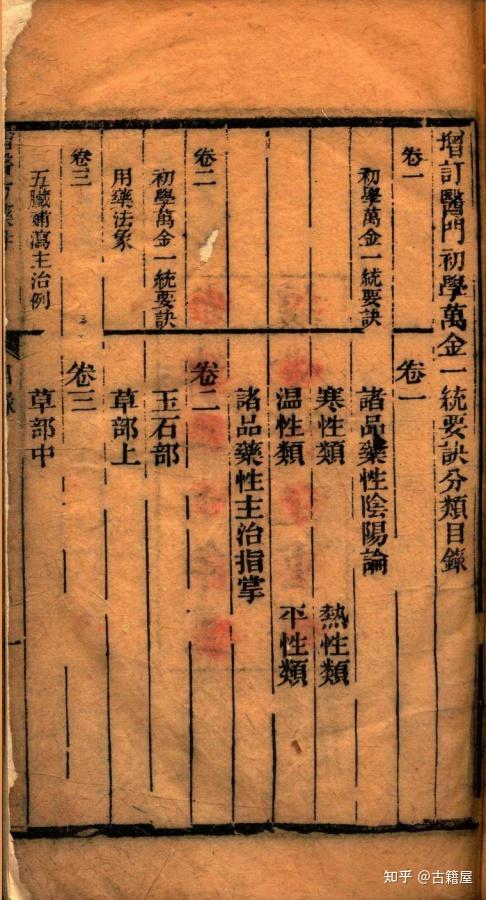 增訂醫門初學萬金一統要訣分類目錄
卷一
初學萬金一統要訣
卷二
初學萬金一統要訣
用藥法象
卷三
五臟補瀉主治例
卷一
諸品藥性陰陽論
寒性類 熱性類
温性類 平性類
諸品藥性主治指掌
卷二
玉石部
草部上
卷三
草部中
一
知乎 @古籍屋